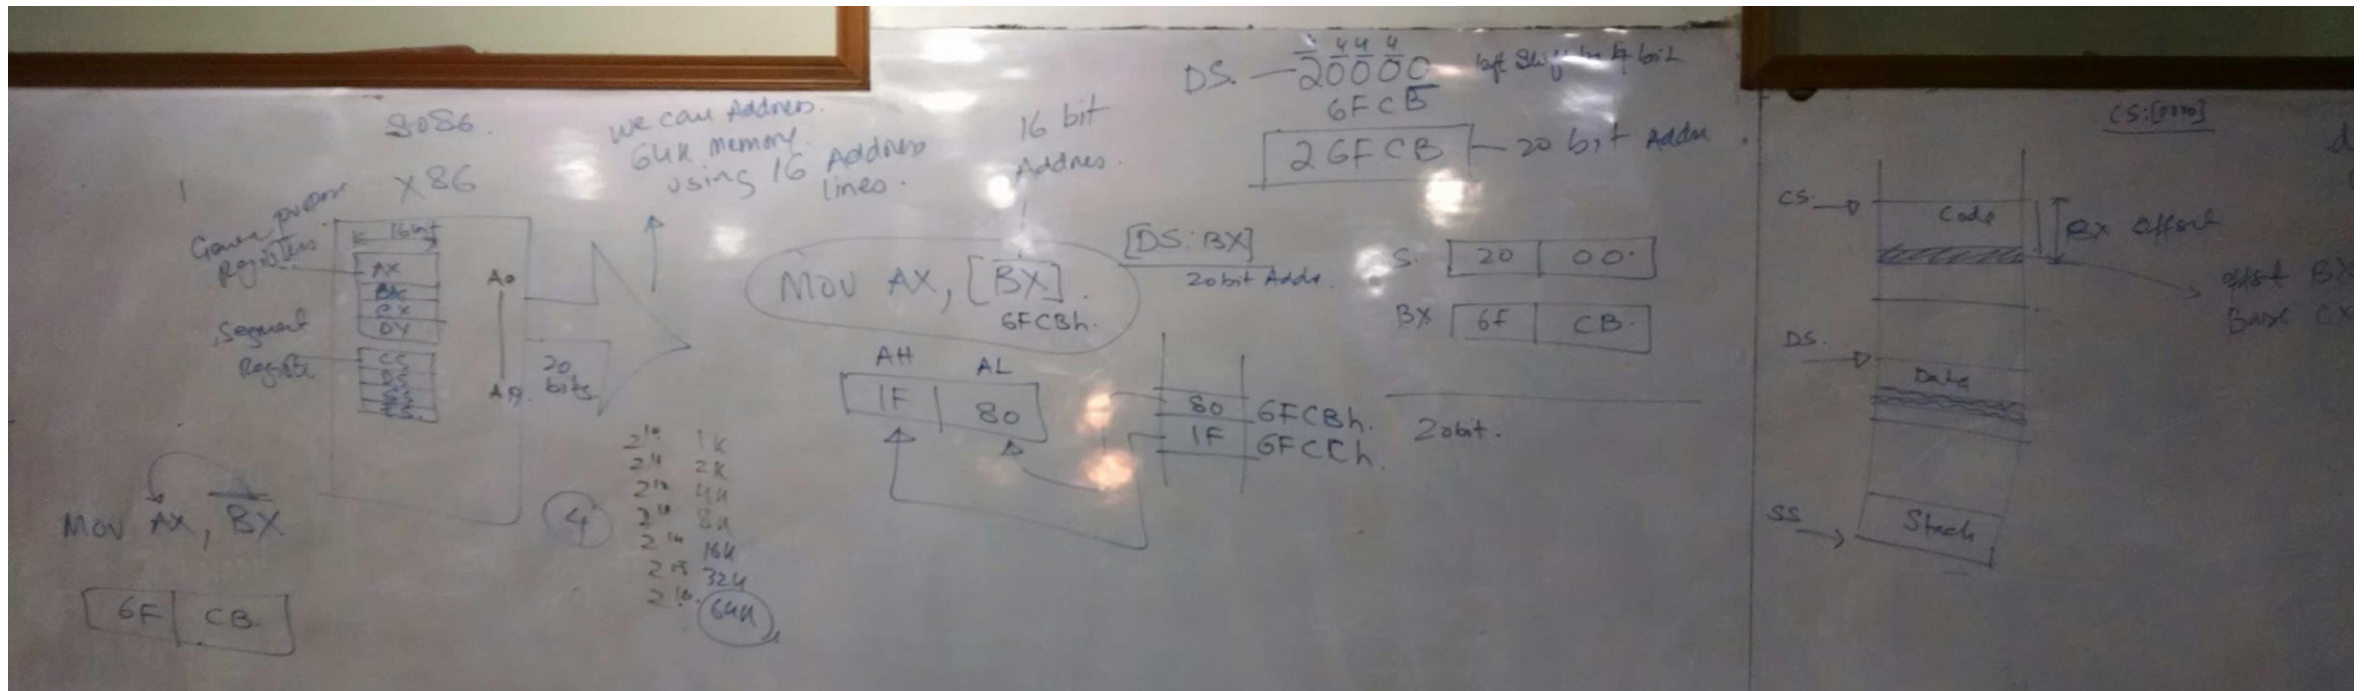 8086.
X86
General purpose
Registers.
16bit
AX
BX
CX
DX
Segment
Register
CS
DS
SS
ES
A0
A19.
20
bits
MOV AX, BX
6F CB.
we can Address.
64K memory.
using 16 Address
lines.
4
2^10 1K
2^11 2K
2^12 4K
2^13 8K
2^14 16K
2^15 32K
2^16. 64K
16 bit
Address.
MOV AX, [BX].
6FCBh.
[DS:BX]
20bit Addr.
AH AL
1F 80
80 6FCBh.
1F 6FCCh.
DS. 20000 left Shift by 4 bit
4 4 4
6FCB
26FCB 20 bit Addr.
S. 20 00.
BX 6F CB.
20bit.
CS:[
CS.
Code
offset
offset BX
Base CX
DS.
Data
SS
Stack